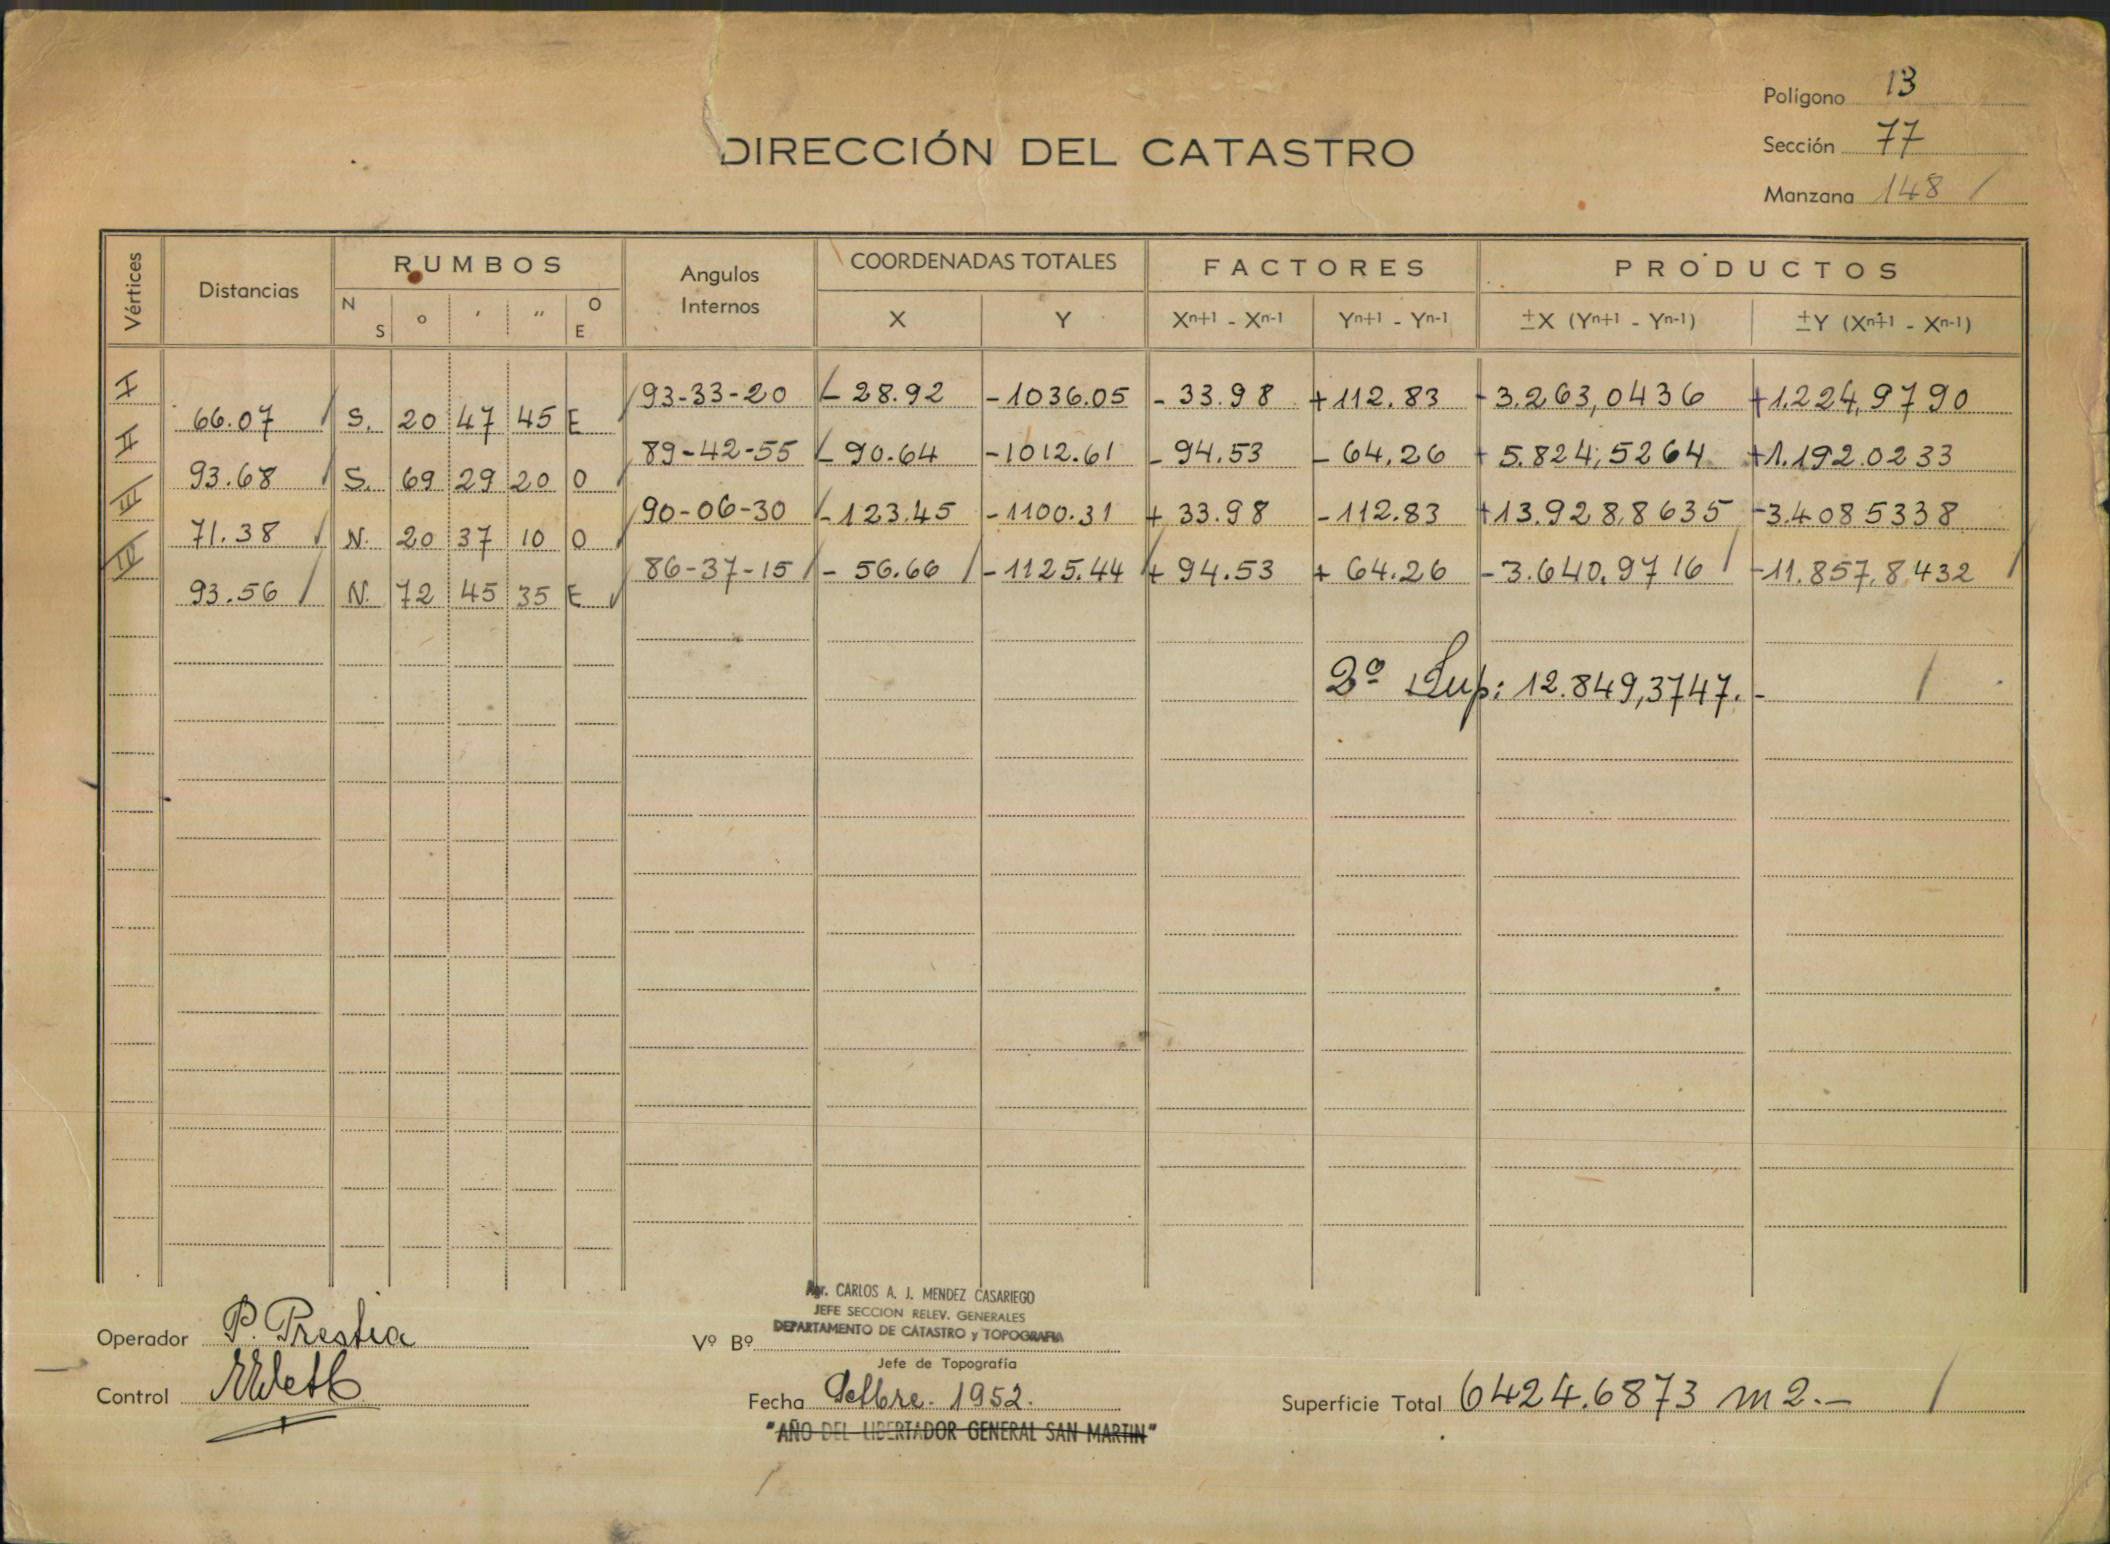 Polígono 13
DIRECCIÓN DEL CATASTRO
Sección 77
Manzana 148 /
Vértices Distancias RUMBOS Angulos Internos COORDENADAS TOTALES FACTORES PRODUCTOS
N S ° ′ ″ O E X Y Xn+1 - Xn-1 Yn+1 - Yn-1 ±X (Yn+1 - Yn-1) ±Y (Xn+1 - Xn-1)
I 93-33-20 - 28.92 -1036.05 - 33.98 +112.83 -3.263,0436 +1.224,9790
66.07 S. 20 47 45 E
II 89-42-55 - 90.64 -1012.61 - 94.53 - 64.26 + 5.824,5264 +1.192.0233
93.68 S. 69 29 20 O
III 90-06-30 -123.45 -1100.31 + 33.98 -112.83 +13.928,8635 -3.4085338
71.38 N. 20 37 10 O
IV 86-37-15 - 56.66 -1125.44 + 94.53 + 64.26 -3.640,9716 -11.857,8432
93.56 N. 72 45 35 E
2º Sup: 12.849,3747.-
Agr. CARLOS A. J. MENDEZ CASARIEGO
JEFE SECCION RELEV. GENERALES
DEPARTAMENTO DE CATASTRO y TOPOGRAFIA
Operador P. Prestia Vº Bº
Jefe de Topografía
Control Fecha Setbre. 1952. Superficie Total 6424.6873 m2.-
"AÑO DEL LIBERTADOR GENERAL SAN MARTIN"